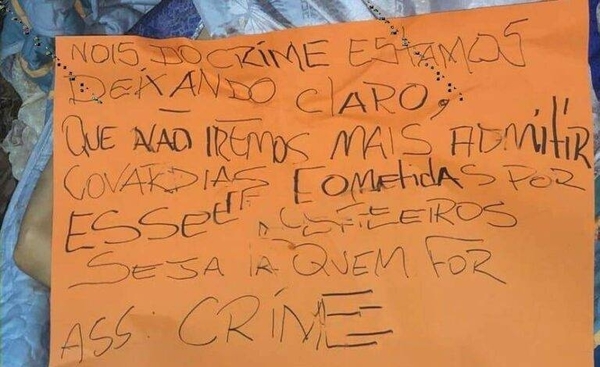 NOIS DO CRIME ESTAMOS
DEIXANDO CLARO,
QUE NÃO IREMOS MAIS ADMITIR
COVARDIAS COMETIDAS POR
ESSE
SEJA LA QUEM FOR
ASS. CRIME